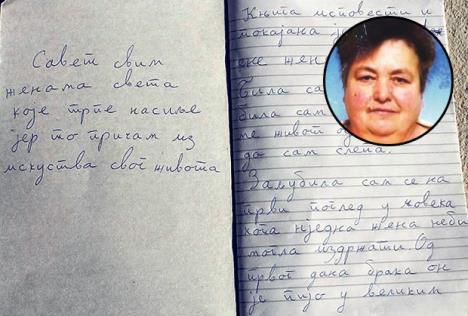 Савет свим
женама света
које трпе насиље
јер то причам из
искуства свог живота
Књига исповести и
покајана
жен
Била са
била сам
ме живот од
да сам слепа.
Заљубила сам се на
први поглед у човека
кога ниједна жена неби
могла издржати. Од
првог дана брака он
је пијо у великим